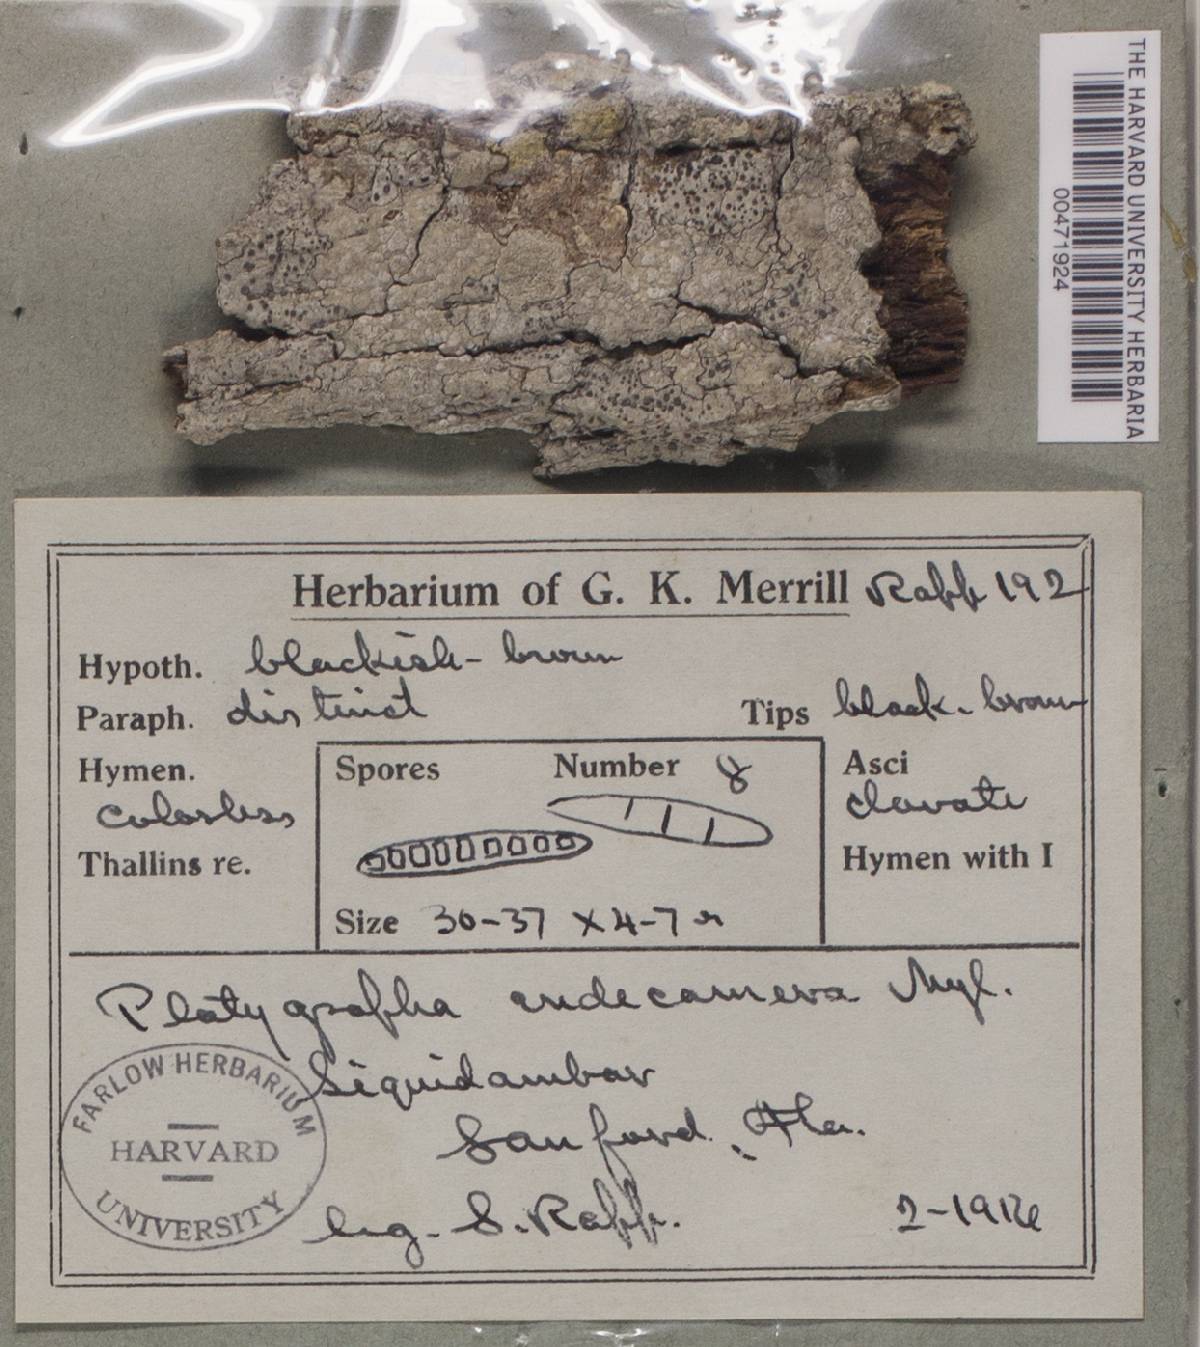 THE HARVARD UNIVERSITY HERBARIA
00471924
Herbarium of G. K. Merrill Rapp 192
Hypoth. blackish-brown
Paraph. distinct
Tips black-brown
Hymen.
colorless
Thallins re.
Spores Number 8
Size 30-37 X 4-7
Asci
clavate
Hymen with I
Platygrapha Nyl.
Liquidambar
Sanford, Fla.
leg. S. Rapp.
FARLOW HERBARIUM
HARVARD
UNIVERSITY